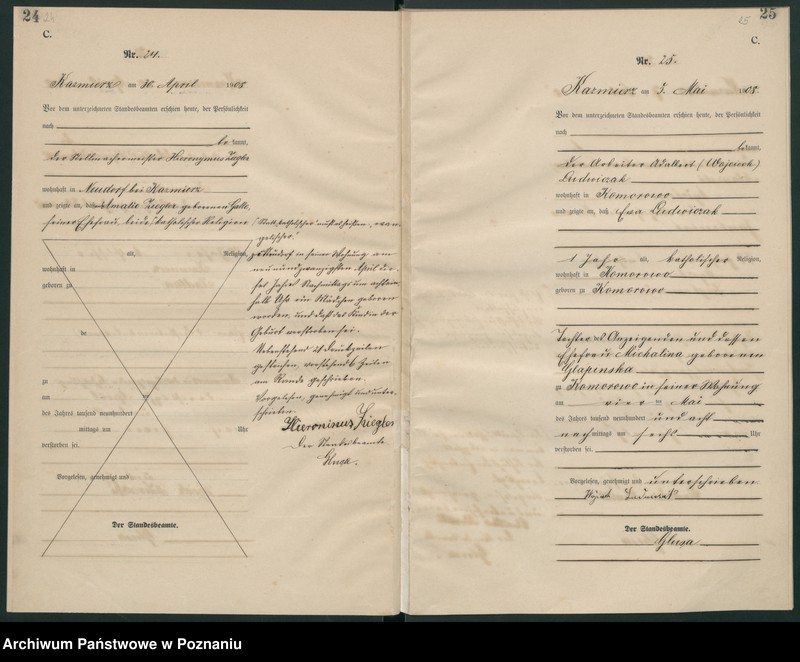 24
C.
Nr. 24.
Kazmierz am 30. April 1908
Vor dem unterzeichneten Standesbeamten erschien heute, der Persönlichkeit
nach
bekannt,
der Stellmachermeister Hieronymus Ziegler
wohnhaft in Neudorf bei Kazmierz
und zeigte an, daß Amalie Ziegler geborene
seiner Ehefrau, beide katholischer Religion
alt, Religion,
wohnhaft in
geboren zu
de
zu
am
des Jahres tausend neunhundert
mittags um Uhr
verstorben sei.
Vorgelesen, genehmigt und
Der Standesbeamte.
"Statt katholischer" muß es heißen, "evan-
gelischer."
zu Neudorf in seiner Wohnung am
neunundzwanzigsten April die-
ses Jahres Nachmittags um achtein
halb Uhr ein Mädchen geboren
worden und daß das Kind in der
Geburt verstorben sei.
Vorstehend Druckzeilen
gestrichen, vorstehend 6 Zeilen
am Rande geschrieben.
Vorgelesen, genehmigt und unter-
schrieben.
Hieronimus Ziegler
Der Standesbeamte
25
25
C.
Nr. 25.
Kazmierz am 5. Mai 1908
Vor dem unterzeichneten Standesbeamten erschien heute, der Persönlichkeit
nach
bekannt,
der Arbeiter Adalbert (Wojciech)
Ludwiczak
wohnhaft in Komorowo
und zeigte an, daß Eva Ludwiczak
1 Jahr alt, katholischer Religion,
wohnhaft in Komorowo
geboren zu Komorowo
Tochter des Anzeigenden und dessen
Ehefrau Michalina geborenen
Glapinska
zu Komorowo in seiner Wohnung
am vier ten Mai
des Jahres tausend neunhundert und acht
nach mittags um sechs Uhr
verstorben sei.
Vorgelesen, genehmigt und unterschrieben
Der Standesbeamte.
Archiwum Państwowe w Poznaniu